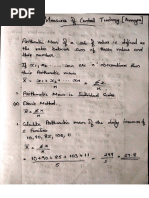 Measures of Central Tendency [Averages]
Arithmetic Mean of a set of values is defined as
the ratio between sum of these values and the
If x₁, x₂, ... are n observations then
their Arithmetic mean
x̄ = Σx / n
* Arithmetic Mean in Individual Series
(a) Direct Method
x̄ = Σx / n
Calculate Arithmetic mean if the daily incomes of
5 families
10, 90, 85, 103, 11
x̄ = Σx / n
= 10+90+85+103+11 / 5 = 299 / 5 = 59.8